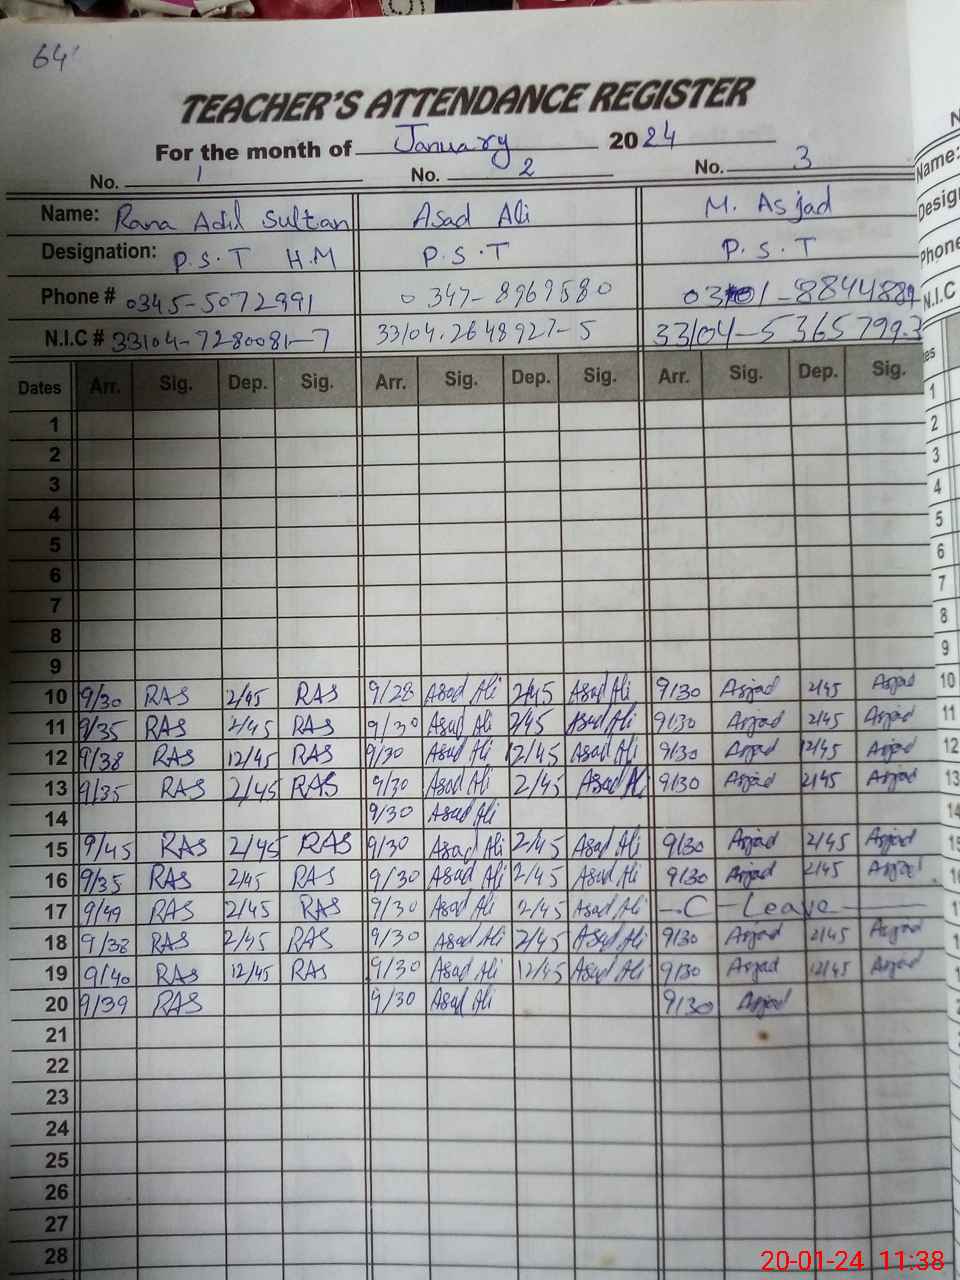 64
TEACHER'S ATTENDANCE REGISTER
For the month of January 2024
No. 1 No. 2 No. 3
Name: Rana Adil Sultan Asad Ali M. Asjad
Designation: P.S.T H.M P.S.T P.S.T
Phone # 0345-5072991 0347-8969580
N.I.C # 33104-7280081-7 33104.2648927-5 33104-5365799-3
Dates Arr. Sig. Dep. Sig. Arr. Sig. Dep. Sig. Arr. Sig. Dep. Sig.
1
2
3
4
5
6
7
8
9
10 9/30 RAS 2/45 RAS 9/28 Asad Ali 2/45 Asad Ali 9/30 Asjad 2/45 Asjad
11 9/35 RAS 2/45 RAS 9/30 Asad Ali 2/45 Asad Ali 9/30 Asjad 2/45 Asjad
12 9/38 RAS 12/45 RAS 9/30 Asad Ali 12/45 Asad Ali 9/30 Asjad 12/45 Asjad
13 9/35 RAS 2/45 RAS 9/30 Asad Ali 2/45 Asad Ali 9/30 Asjad 2/45 Asjad
14 9/30 Asad Ali
15 9/45 RAS 2/45 RAS 9/30 Asad Ali 2/45 Asad Ali 9/30 Asjad 2/45 Asjad
16 9/35 RAS 2/45 RAS 9/30 Asad Ali 2/45 Asad Ali 9/30 Asjad 2/45 Asjad
17 9/49 RAS 2/45 RAS 9/30 Asad Ali 2/45 Asad Ali - C - Leave -
18 9/38 RAS 2/45 RAS 9/30 Asad Ali 2/45 Asad Ali 9/30 Asjad 2/45 Asjad
19 9/40 RAS 12/45 RAS 9/30 Asad Ali 12/45 Asad Ali 9/30 Asjad 12/45 Asjad
20 9/39 RAS 9/30 Asad Ali 9/30 Asjad
21
22
23
24
25
26
27
28
Name:
Phone
N.I.C
1
2
3
4
5
6
7
8
9
10
11
12
13
20-01-24 11:38